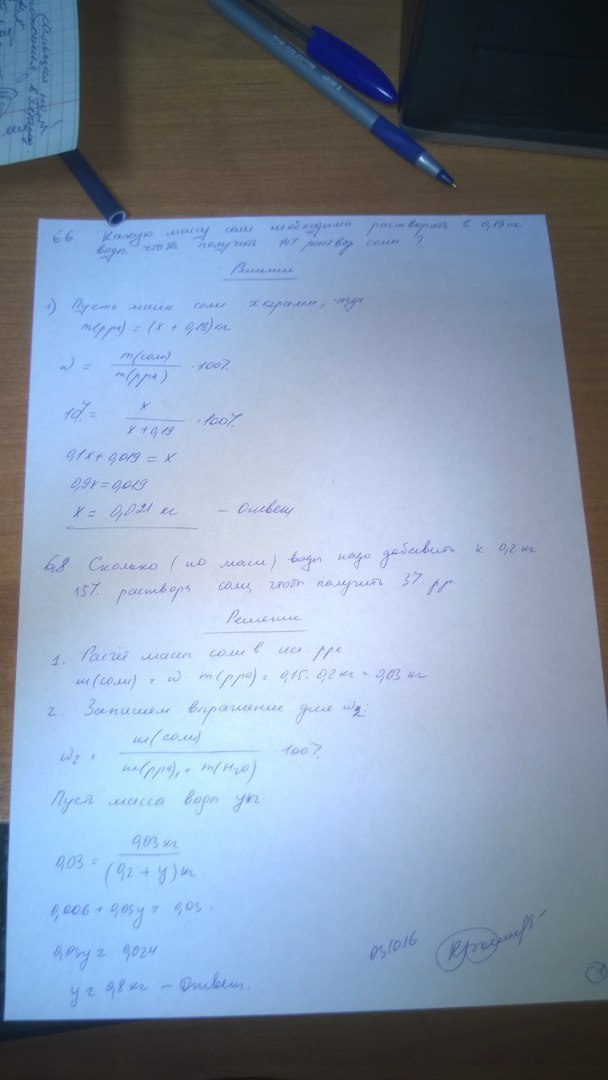 6.6 Какую массу соли необходимо растворить в 0,19 кг
воды чтобы получить 10% раствор соли?
Решение
1) Пусть масса соли x килограмм, тогда
m(рра) = (x + 0,19) кг
ω = m(соли) / m(рра) · 100%
10% = x / x + 0,19 · 100%
0,1x + 0,019 = x
0,9x = 0,019
x = 0,021 кг — Ответ
6.8 Сколько (по массе) воды надо добавить к 0,2 кг
15% раствора соли, чтобы получить 3% рр.
Решение
1. Расчёт массы соли в исх рре.
m(соли) = ω · m(рра) = 0,15 · 0,2 кг = 0,03 кг
2. Запишем выражение для ω2:
ω2 = m(соли) / m(рра)1 + m(H2O) · 100%
Пусть масса воды y кг
0,03 = 0,03 кг / (0,2 + y) кг
0,006 + 0,03y = 0,03.
0,03y = 0,024
y = 0,8 кг — Ответ.
03.10.16